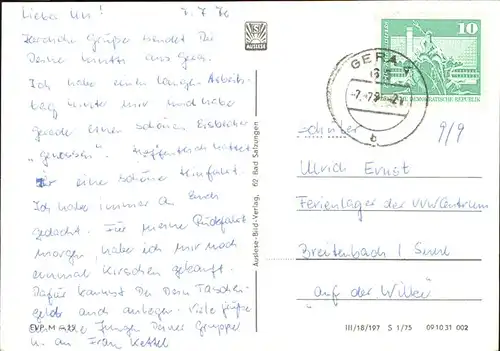 Lieber Uli! 7.7.76
Herzliche Grüße sendet Dir
Deine Mutti aus Gera.
Ich habe einen langen Arbeits-
tag hinter mir und habe
gerade einen schönen Eisbecher
"genossen". Hoffentlich hattet
Ihr eine schöne Hinfahrt.
Ich habe immer an Euch
gedacht. Für meine Rückfahrt
morgen, habe ich mir noch
einmal Kirschen gekauft.
Dafür kannst Du Dein Taschen-
geld auch anlegen. Viele Grüße
Jungs Deiner Gruppe
u. an Frau Kettel
EVP M
AUSLESE
Auslese-Bild-Verlag, 62 Bad Salzungen
10
DEUTSCHE DEMOKRATISCHE REPUBLIK
GERA
b
9/9
Ulrich Ernst
Ferienlager der VVW Centrum
Breitenbach / Suhl
"auf der Willer"
III/18/197 S 1/75 09 10 31 002